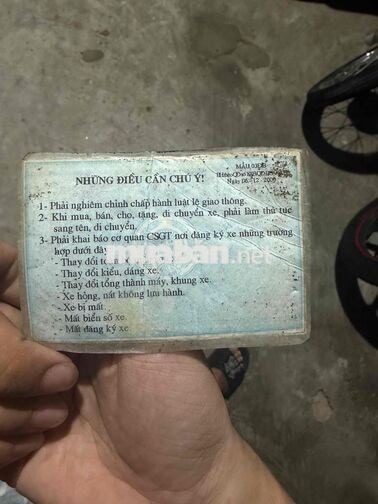 MẪU 03ĐB
Ngày 06-12-2000
NHỮNG ĐIỀU CẦN CHÚ Ý!
1- Phải nghiêm chỉnh chấp hành luật lệ giao thông.
2- Khi mua, bán, cho, tặng, di chuyển xe, phải làm thủ tục
sang tên, di chuyển.
3- Phải khai báo cơ quan CSGT nơi đăng ký xe những trường
hợp dưới đây
- Thay đổi
- Thay đổi kiểu, dáng xe.
- Thay đổi tổng thành máy, khung xe.
- Xe hỏng, nát không lưu hành.
- Xe bị mất.
- Mất biển số xe.
- Mất đăng ký xe.
muaban.net